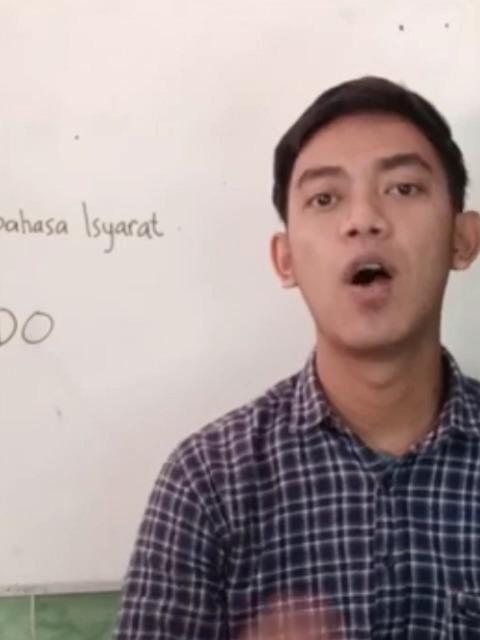 bahasa Isyarat
DO